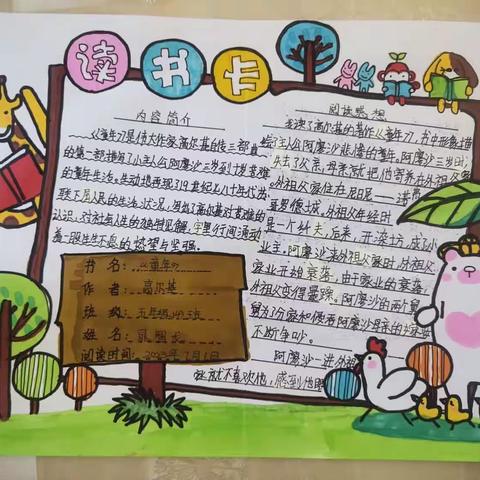 读书卡
内容简介
《童年》是伟大作家高尔基传三部曲
的第一部描写了小主人公阿廖沙三岁到十岁苦难
的童年生活。生动地再现了19世纪七八十年代沙
联下层人民的生活状况,写出了高尔基对苦难的
认识,对社会人生的独特见解,字里行间涌动
着一股生生不息的热望与坚强。
书名:《童年》
作者:高尔基
班级:五年级
姓名:
阅读时间:2023年7月1日
阅读感想
我读了高尔基的著作《童年》,书中形象描
绘了主人公阿廖沙悲惨的童年,阿廖沙三岁时,
失去了父亲,母亲就把他寄养在外祖父家
外祖父家住在尼日尼——诺弗
哥罗德城,外祖父年轻时
是一个纤夫,后来,开染坊,成了小
业主,阿廖沙来外祖父家时,外祖父
家业开始衰落,由于家业的衰落,
外祖父变得暴躁,阿廖沙的两个舅
舅为了分家和侵吞阿廖沙母亲的嫁妆
不断争吵。
阿廖沙一进外祖
家就不喜欢他,感到他眼